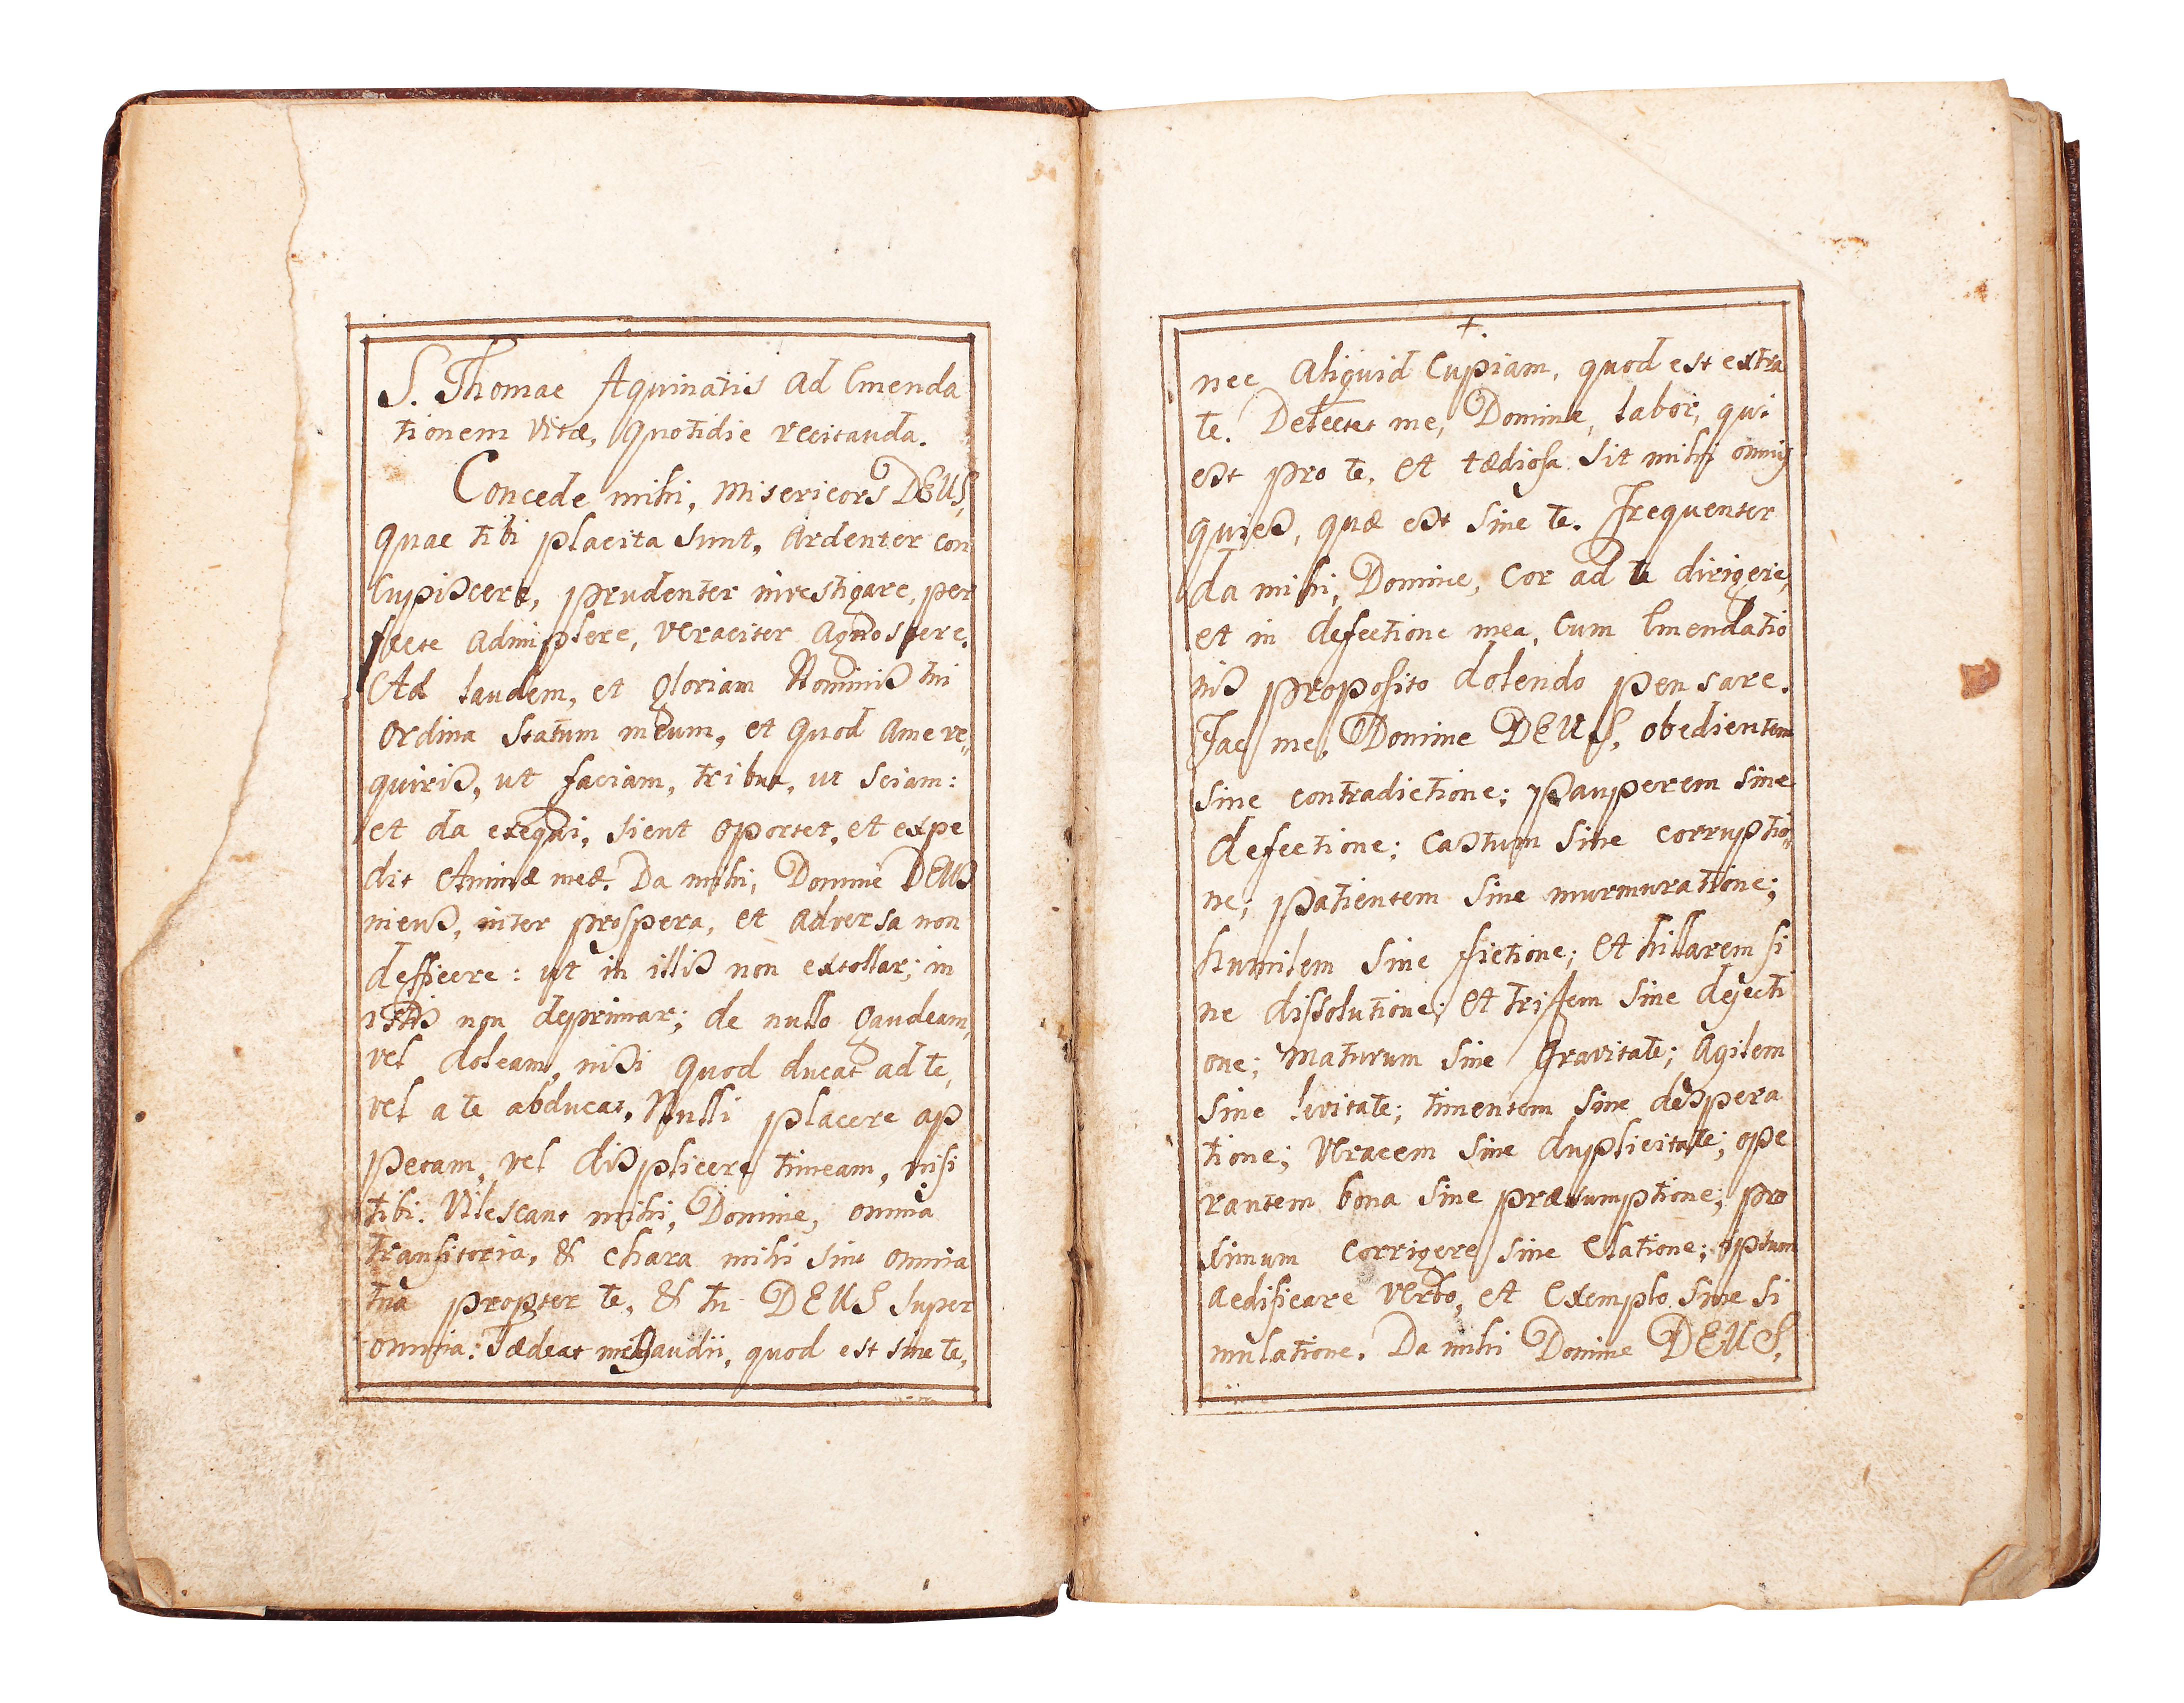 S. Thomae Aquinatis ad Emenda
tionem Vitæ, quotidie recitanda.
Concede mihi, Misericors DEUS,
quae tibi placita sunt, ardenter con
cupiscere, prudenter investigare, per
fecte adimplere, veraciter agnoscere.
Ad laudem, et gloriam Nominis tui
ordina statum meum, et quod a me re„
quiris, ut faciam, tribue, ut sciam:
et da exequi, sicut oportet, et expe
dit Animæ meæ. Da mihi, Domine DEUS
meus, inter prospera, et adversa non
defficere: ut in illis non extollar; in
istis non deprimar; de nullo gaudeam,
vel doleam, nisi quod ducat ad te,
vel a te abducat. Nulli placere ap
petam, vel displicere timeam, nisi
tibi. Vilescant mihi, Domine, omnia
transitoria, & chara mihi sint omnia
tua propter te, & tu DEUS super
omnia: Tædeat me gaudii, quod est sine te,
+
nec aliquid cupiam, quod est extra
te. Delectet me, Domine, labor, qui
est pro te, et tædiosa sit mihi omnis
quies, quæ est sine te. Frequenter
da mihi, Domine, cor ad te dirigere,
et in defectione mea, cum Emendatio
nis proposito dolendo pensare.
Fac me, Domine DEUS, obedientem
sine contradictione; pauperem sine
defectione; castum sine corruptio„
ne; patientem sine murmuratione;
humilem sine fictione; et hillarem si
ne dissolutione; et tristem sine dejecti
one; maturum sine gravitate; agilem
sine levitate; timentem sine despera
tione; veracem sine duplicitate; ope
rantem bona sine præsumptione; pro
ximum corrigere sine elatione; ipsum
aedificare verbo, et exemplo sine si
mulatione. Da mihi Domine DEUS,